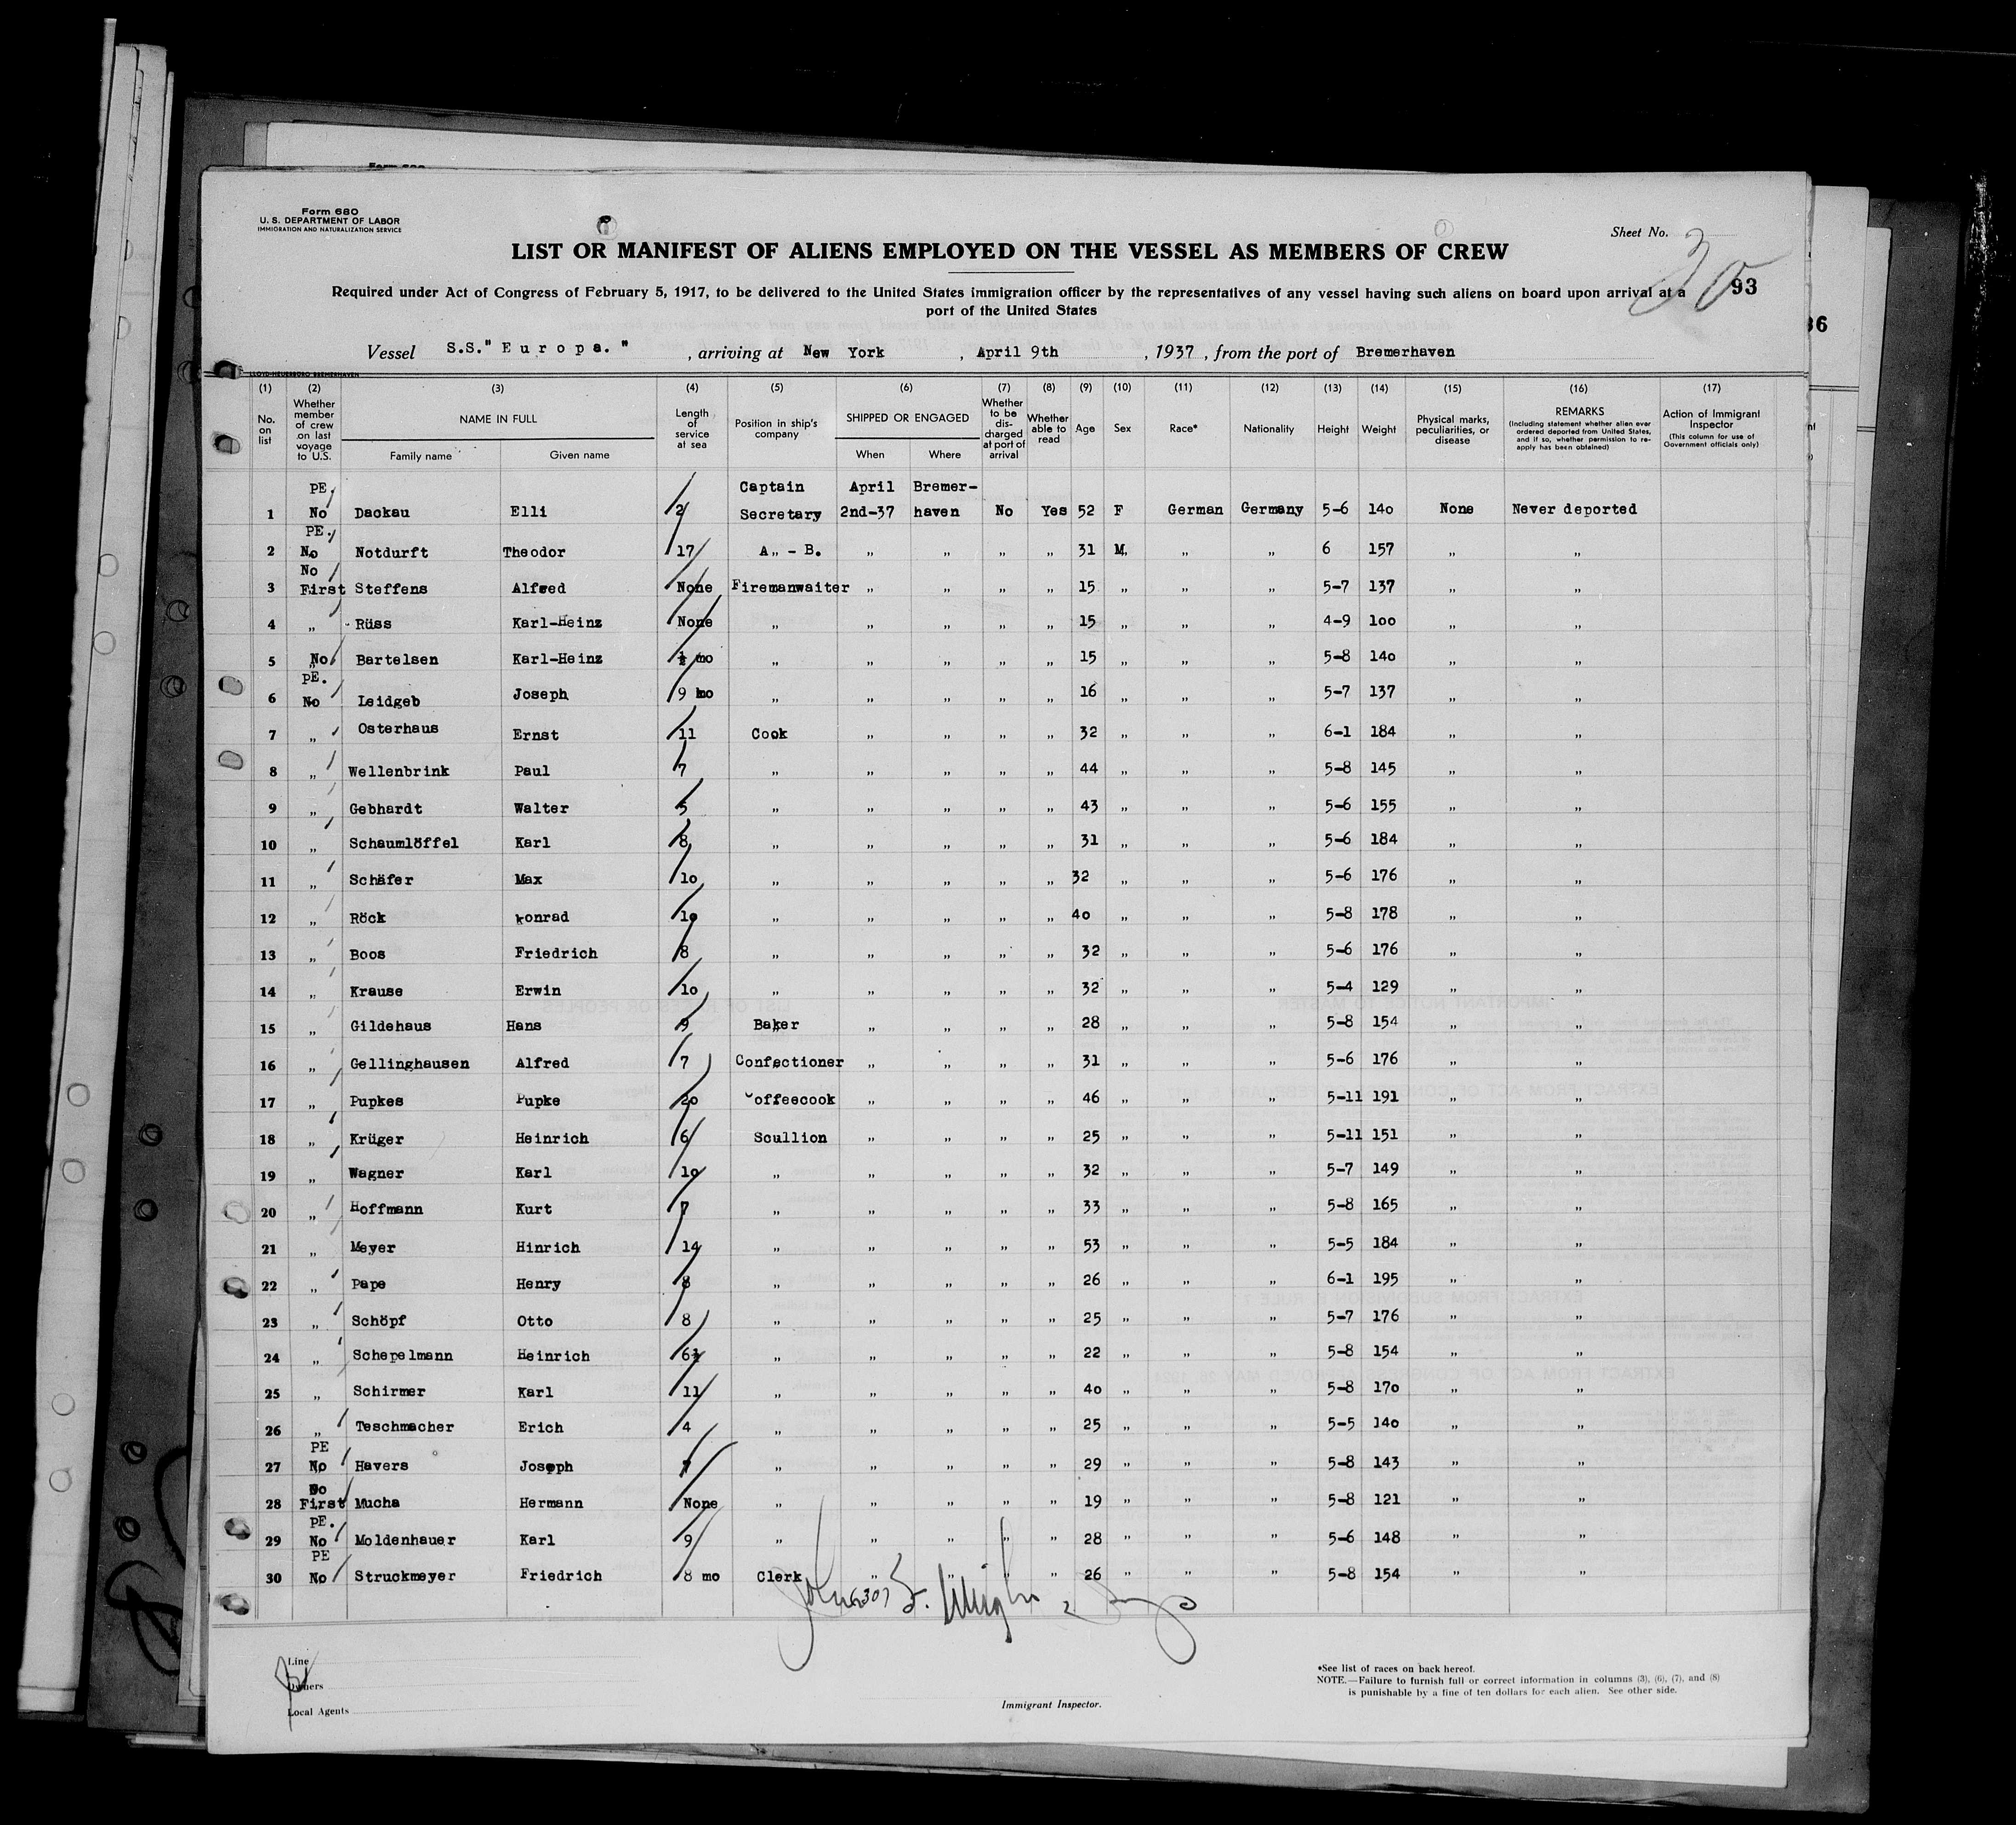 Form 680
U. S. DEPARTMENT OF LABOR
IMMIGRATION AND NATURALIZATION SERVICE
Sheet No.
LIST OR MANIFEST OF ALIENS EMPLOYED ON THE VESSEL AS MEMBERS OF CREW
93
Required under Act of Congress of February 5, 1917, to be delivered to the United States immigration officer by the representatives of any vessel having such aliens on board upon arrival at a
port of the United States
Vessel S.S." Europa. " , arriving at New York , April 9th , 1937 , from the port of Bremerhaven
(1) (2) (3) (4) (5) (6) (7) (8) (9) (10) (11) (12) (13) (14) (15) (16) (17)
No. on list Whether member of crew on last voyage to U.S. NAME IN FULL Family name Given name Length of service at sea Position in ship's company SHIPPED OR ENGAGED When Where Whether to be discharged at port of arrival Whether able to read Age Sex Race* Nationality Height Weight Physical marks, peculiarities, or disease REMARKS (Including statement whether alien ever ordered deported from United States, and if so, whether permission to reapply has been obtained) Action of Immigrant Inspector (This column for use of Government officials only)
PE Captain April Bremer-
1 No Dackau Elli 2 Secretary 2nd-37 haven No Yes 52 F German Germany 5-6 140 None Never deported
PE.
2 No Notdurft Theodor 17 A„ - B. „ „ „ „ 31 M. „ „ 6 157 „ „
No
3 First Steffens Alfred None Firemanwaiter „ „ „ „ 15 „ „ „ 5-7 137 „ „
4 „ Rüss Karl-Heinz None „ „ „ „ „ 15 „ „ „ 4-9 100 „ „
5 No Bartelsen Karl-Heinz ½ mo „ „ „ „ „ 15 „ „ „ 5-8 140 „ „
PE.
6 No Leidgeb Joseph 9 mo „ „ „ „ „ 16 „ „ „ 5-7 137 „ „
7 „ Osterhaus Ernst 11 Cook „ „ „ „ 32 „ „ „ 6-1 184 „ „
8 „ Wellenbrink Paul 7 „ „ „ „ „ 44 „ „ „ 5-8 145 „ „
9 „ Gebhardt Walter 5 „ „ „ „ „ 43 „ „ „ 5-6 155 „ „
10 „ Schaumlöffel Karl 8 „ „ „ „ „ 31 „ „ „ 5-6 184 „ „
11 „ Schäfer Max 10 „ „ „ „ „ 32 „ „ „ 5-6 176 „ „
12 „ Röck Konrad 10 „ „ „ „ „ 40 „ „ „ 5-8 178 „ „
13 „ Boos Friedrich 8 „ „ „ „ „ 32 „ „ „ 5-6 176 „ „
14 „ Krause Erwin 10 „ „ „ „ „ 32 „ „ „ 5-4 129 „ „
15 „ Gildehaus Hans 9 Baker „ „ „ „ 28 „ „ „ 5-8 154 „ „
16 „ Gellinghausen Alfred 7 Confectioner „ „ „ „ 31 „ „ „ 5-6 176 „ „
17 „ Pupkes Pupke 20 Coffeecook „ „ „ „ 46 „ „ „ 5-11 191 „ „
18 „ Krüger Heinrich 6 Scullion „ „ „ „ 25 „ „ „ 5-11 151 „ „
19 „ Wagner Karl 10 „ „ „ „ „ 32 „ „ „ 5-7 149 „ „
20 „ Hoffmann Kurt 7 „ „ „ „ „ 33 „ „ „ 5-8 165 „ „
21 „ Meyer Hinrich 14 „ „ „ „ „ 53 „ „ „ 5-5 184 „ „
22 „ Pape Henry 8 „ „ „ „ „ 26 „ „ „ 6-1 195 „ „
23 „ Schöpf Otto 8 „ „ „ „ „ 25 „ „ „ 5-7 176 „ „
24 „ Schepelmann Heinrich 6½ „ „ „ „ „ 22 „ „ „ 5-8 154 „ „
25 „ Schirmer Karl 11 „ „ „ „ „ 40 „ „ „ 5-8 170 „ „
26 „ Teschmacher Erich 4 „ „ „ „ „ 25 „ „ „ 5-5 140 „ „
PE
27 No Havers Joseph 7 „ „ „ „ „ 29 „ „ „ 5-8 143 „ „
No
28 First Mucha Hermann None „ „ „ „ „ 19 „ „ „ 5-8 121 „ „
PE.
29 No Moldenhauer Karl 9 „ „ „ „ „ 28 „ „ „ 5-6 148 „ „
PE
30 No Struckmeyer Friedrich 8 mo Clerk „ „ „ „ 26 „ „ „ 5-8 154 „ „
Line
Owners
Local Agents
Immigrant Inspector.
*See list of races on back hereof.
NOTE.—Failure to furnish full or correct information in columns (3), (6), (7), and (8)
is punishable by a fine of ten dollars for each alien. See other side.